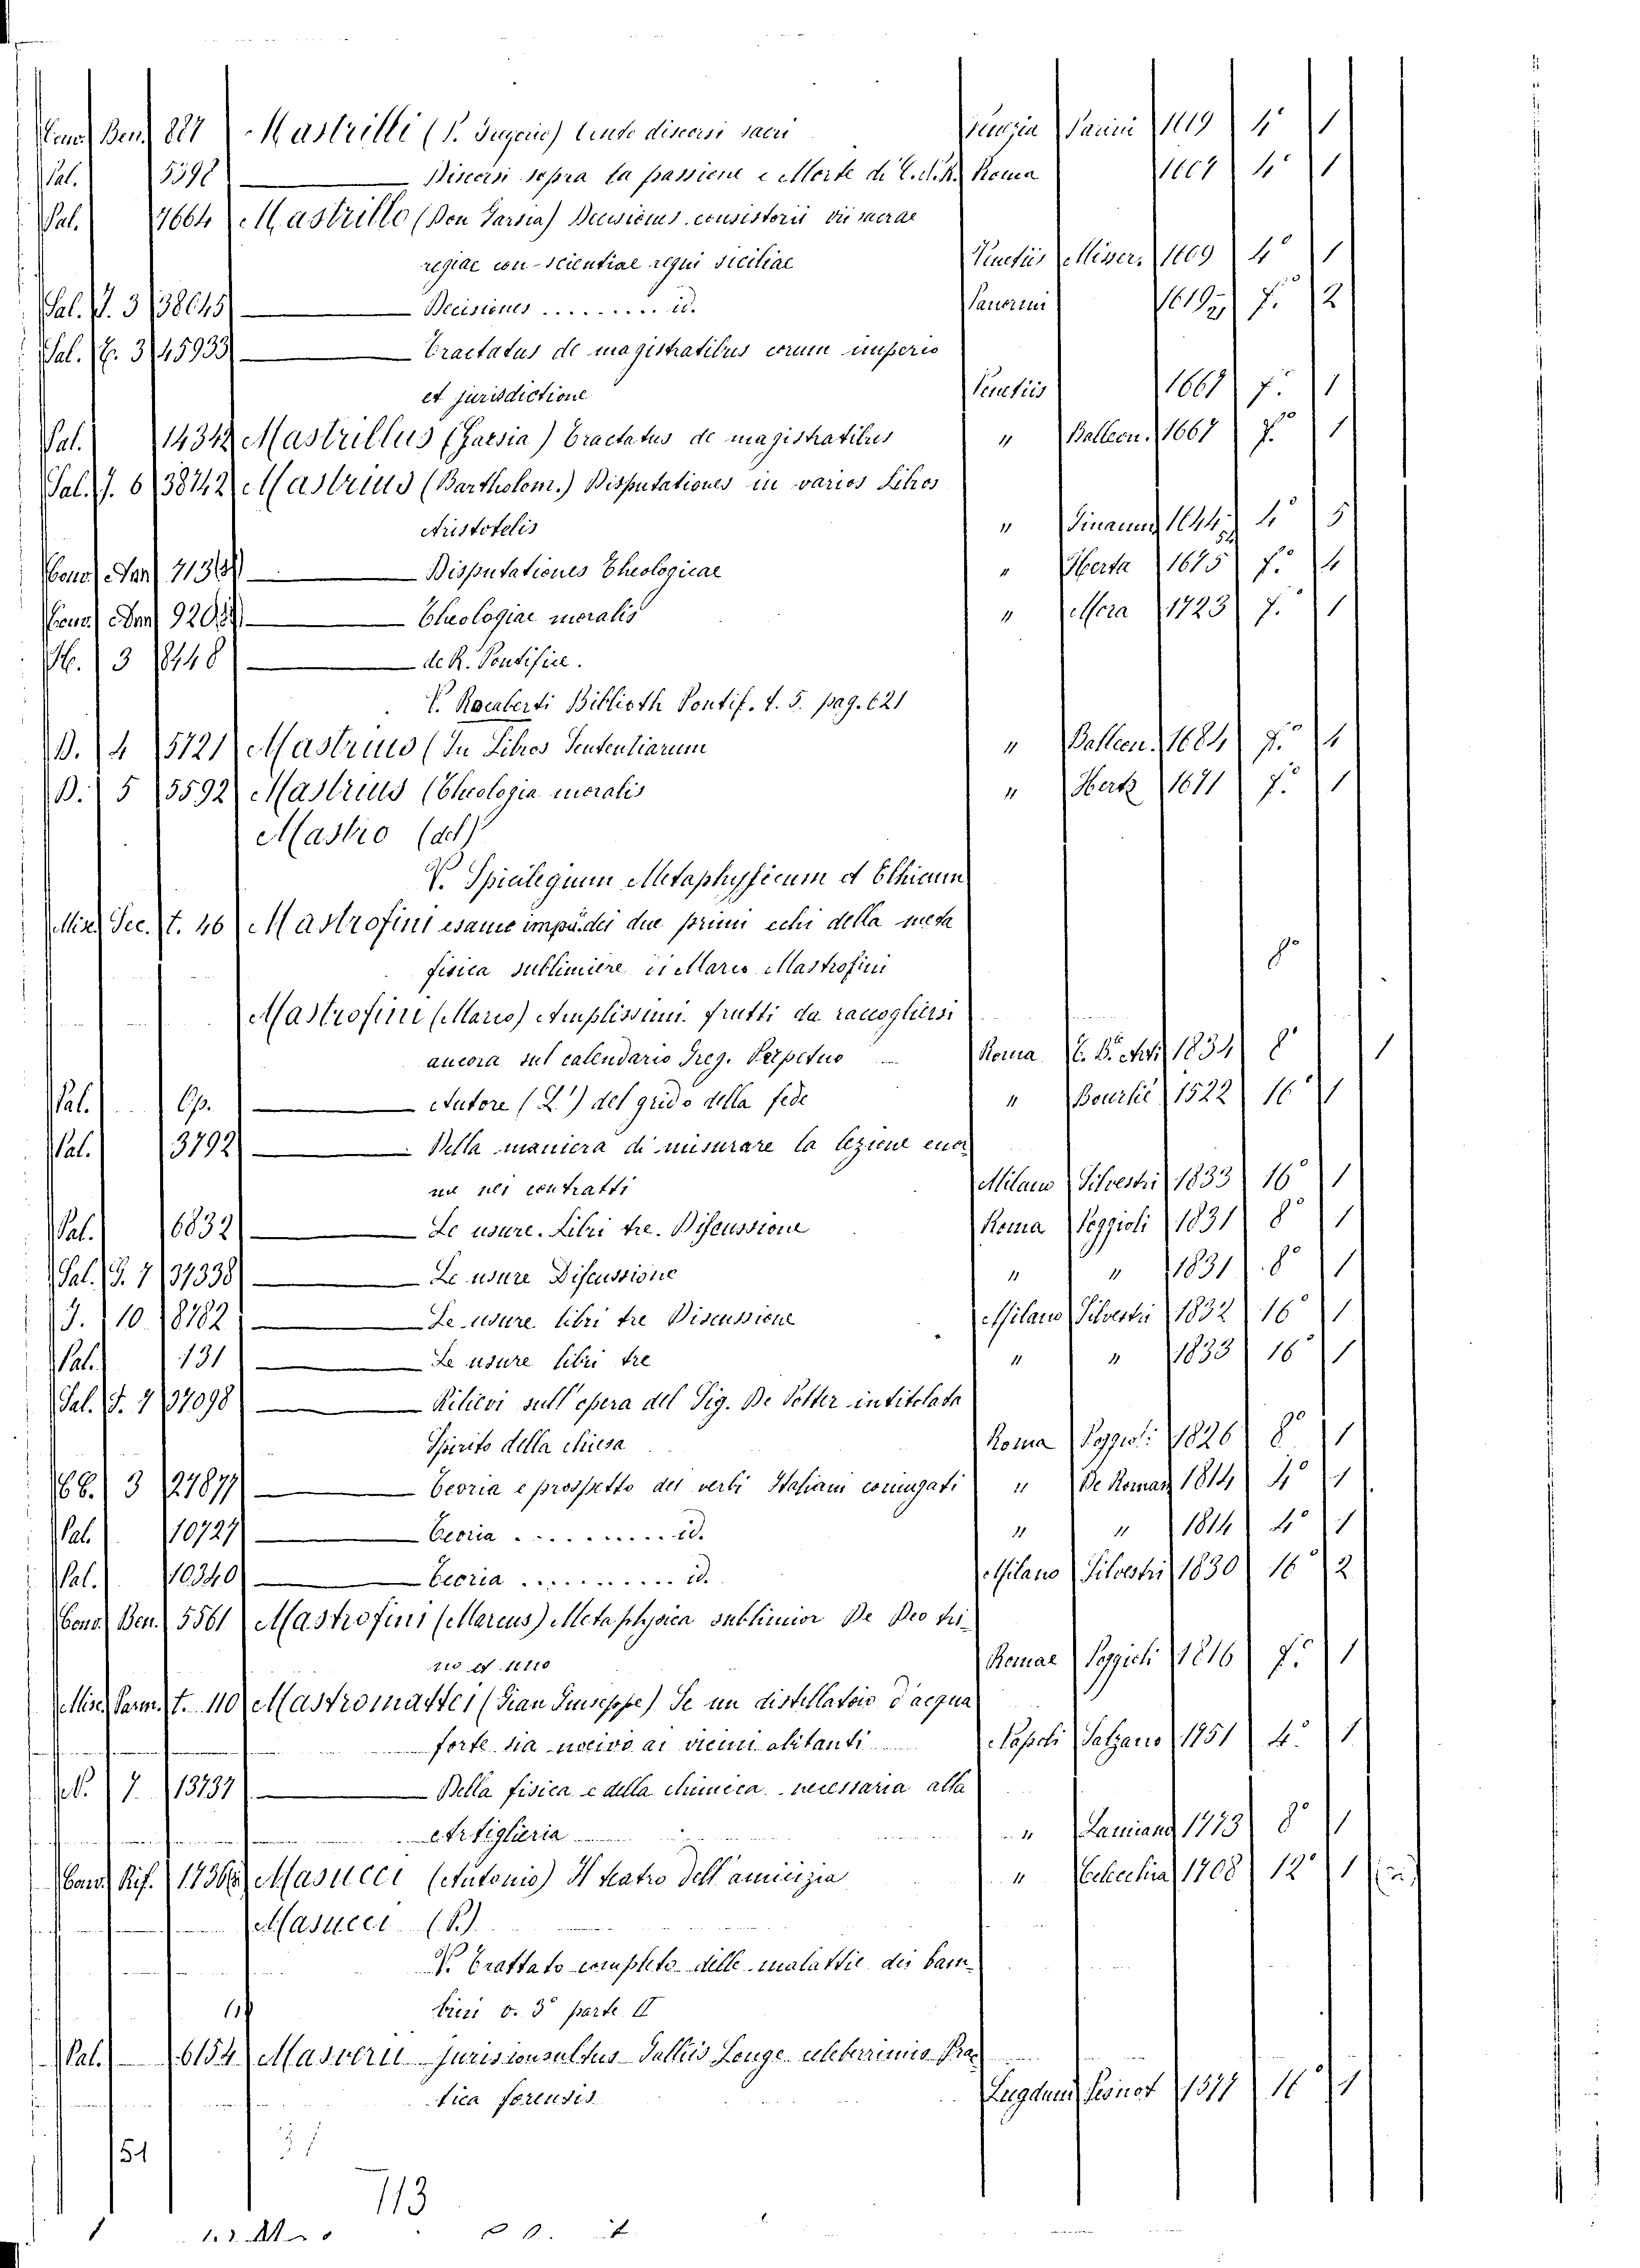 Cono. Ben. 887 Mastrilli (P. Eugenio) Cento discorsi sacri Venezia Parini 1619 4° 1
Pal. 5398 Discorsi sopra la passione e Morte di Roma 1664 4° 1
Pal. 7664 Mastrillo (Don Garsia) Decisiones consistorii
regiae con-scientiae regni siciliae Venetiis Miser. 1609 4° 1
Sal. P. 3 38645 Decisiones ......... id. Panormi f. 2
Sal. E. 3 45933 Tractatus de magistratibus eorum imperio
et jurisdictione Venetiis 1667 f. 1
Pal. 14342 Mastrillus (Garsia) Tractatus de magistratibus " Balleon. 1667 f. 1
Sal. J. 6 38742 Mastrius (Bartholom.) Disputationes in varios Libros
Aristotelis " Ginamm 4° 5
Cono. San. Disputationes Theologicae " Herta 1675 f. 4
Cono. San. Theologiae moralis " Mora 1723 f. 1
H. 3 8448 de R. Pontifice.
V. Rocaberti Biblioth Pontif. t. 5. pag. 621
D. 4 5721 Mastrius (In Libros Sententiarum " Balleon. 1684 f. 1
D. 5 5592 Mastrius (Theologia moralis " Hertz 1671 f. 1
Mastro (del)
V. Spicilegium Metaphysicum et Ethicum
Misc. Sec. t. 46 Mastrofini esame dei due primi echi della meta
fisica sublimiere di Marco Mastrofini 8°
Mastrofini (Marco) Amplissimi frutti da raccogliersi
ancora sul calendario Greg. Perpetuo Roma 1834 8° 1
Pal. Op. Autore (L') del grido della fede " Bourlié 1522 16° 1
Pal. 3792 Della maniera di misurare la lezione enor
me nei contratti Milano Silvestri 1833 16° 1
Pal. 6832 Le usure. Libri tre. Discussione Roma Poggioli 1831 8° 1
Sal. G. 7 37338 Le usure Discussione " " 1831 8° 1
J. 10 8782 Le usure libri tre Discussione Milano Silvestri 1832 16° 1
Pal. 131 Le usure libri tre " " 1833 16° 1
Sal. J. 7 37098 Rilievi sull'opera del Sig. De Potter intitolata
Spirito della chiesa Roma Poggioli 1826 8° 1
CC. 3 27877 Teoria e prospetto dei verbi Italiani coniugati " De Roman 1814 4° 1
Pal. 10727 Teoria .......... id. " " 1814 4° 1
Pal. 10340 Teoria .......... id. Milano Silvestri 1830 16° 2
Cono. Ben. 5561 Mastrofini (Marcus) Metaphysica sublimior De Deo tri-
no et uno Romae Poggioli 1816 f. 1
Misc. Parm. t. 110 Mastromattei (Gian Giuseppe) Se un distillatoio d'acqua
forte sia nocivo ai vicini abitanti Napoli Salzano 1751 4° 1
N. 7. 13737 Della fisica e della chimica necessaria alla
Artiglieria " Lanciano 1773 8° 1
Cono. Rif. Masucci (Antonio) Il teatro dell'amicizia " 1708 12° 1
Masucci (P.)
V. Trattato completo delle malattie dei bam-
bini v. 3° parte II
Pal. 6154 Masverii jurisconsultus Galliis Longe celeberrimis Prac
tica forensis Lugduni Pesnot 1577 16 1
51
713